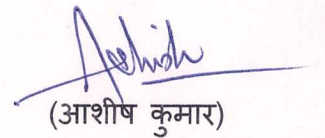 Ashish
(आशीष कुमार)